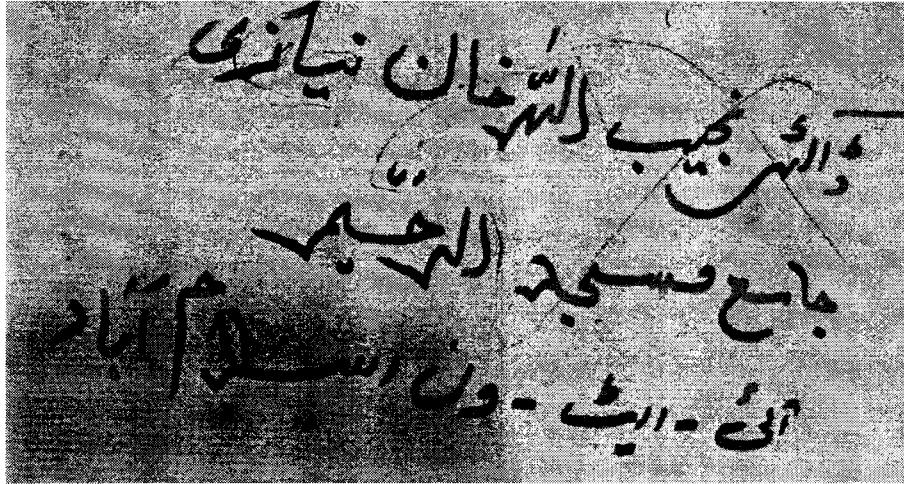 ڈاکٹر نجیب اللہ خان نیازی
جامع مسجد الرحیم
آئی - ایٹ - ون اسلام آباد